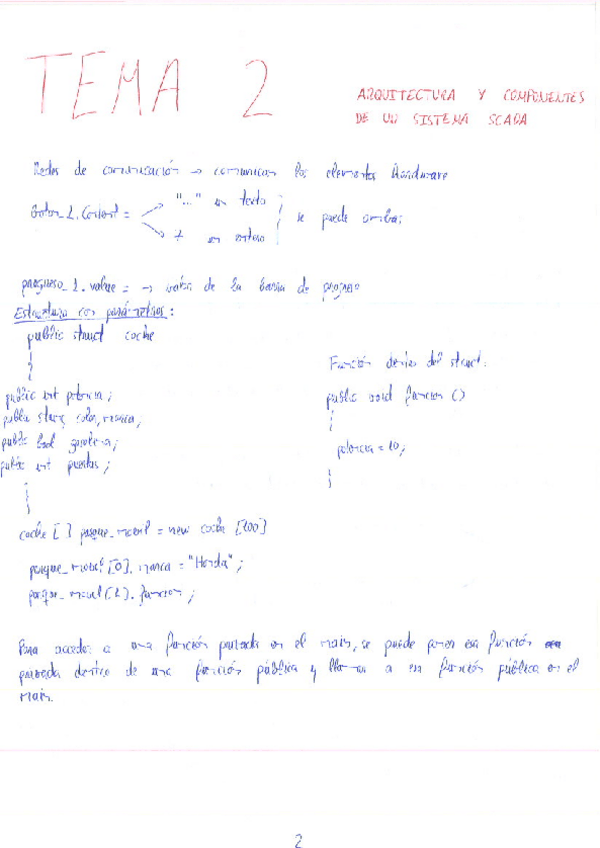 TEMA 2
ARQUITECTURA Y COMPONENTES
DE UN SISTEMA SCADA
Redes de comunicación → comunican los elementos Hardware
Boton_1.Content = "..." en texto
7 en entero
se puede ambas
progreso_1.value = → valor de la barra de progreso
Estructura con parámetros:
public struct coche
{
public int potencia;
public string color, marca;
public bool gasolina;
public int puertas;
}
Función dentro del struct:
public void funcion ()
{
potencia = 10;
}
coche [ ] parque_movil = new coche [100]
parque_movil [0]. marca = "Honda";
parque_movil [1]. funcion;
Para acceder a una función privada en el main, se puede poner esa función
privada dentro de una función pública y llamar a esa función pública en el
main.
2